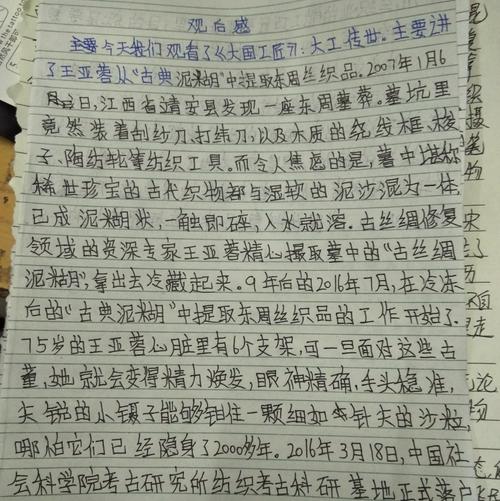 观后感
今天我们观看了《大国工匠》:大工传世。主要讲
了王亚蓉从“古典泥糊”中提取东周丝织品。2007年1月6
日,江西省靖安县发现一座东周墓葬。墓坑里
竟然装着刮纱刀、打纬刀,以及木质的绕线框、梭
子、陶纺轮等纺织工具。而令人焦虑的是,墓中堪称
稀世珍宝的古代织物都与湿软的泥沙混为一体,
已成泥糊状,一触即碎,入水就溶。古丝绸修复
领域的资深专家王亚蓉精心撮取墓中的“古丝绸
泥糊”,拿出去冷藏起来。9年后的2016年7月,在冷冻
后的“古典泥糊”中提取东周丝织品的工作开始了.
75岁的王亚蓉心脏里有6个支架,可一旦面对这些古
董,她就会变得精力焕发,眼神精确,手头稳准,
尖锐的小镊子能够钳住一颗细如针尖的沙粒,
哪怕它们已经隐身了2000多年。2016年3月18日,中国社
会科学院考古研究所纺织考古科研基地正式落户